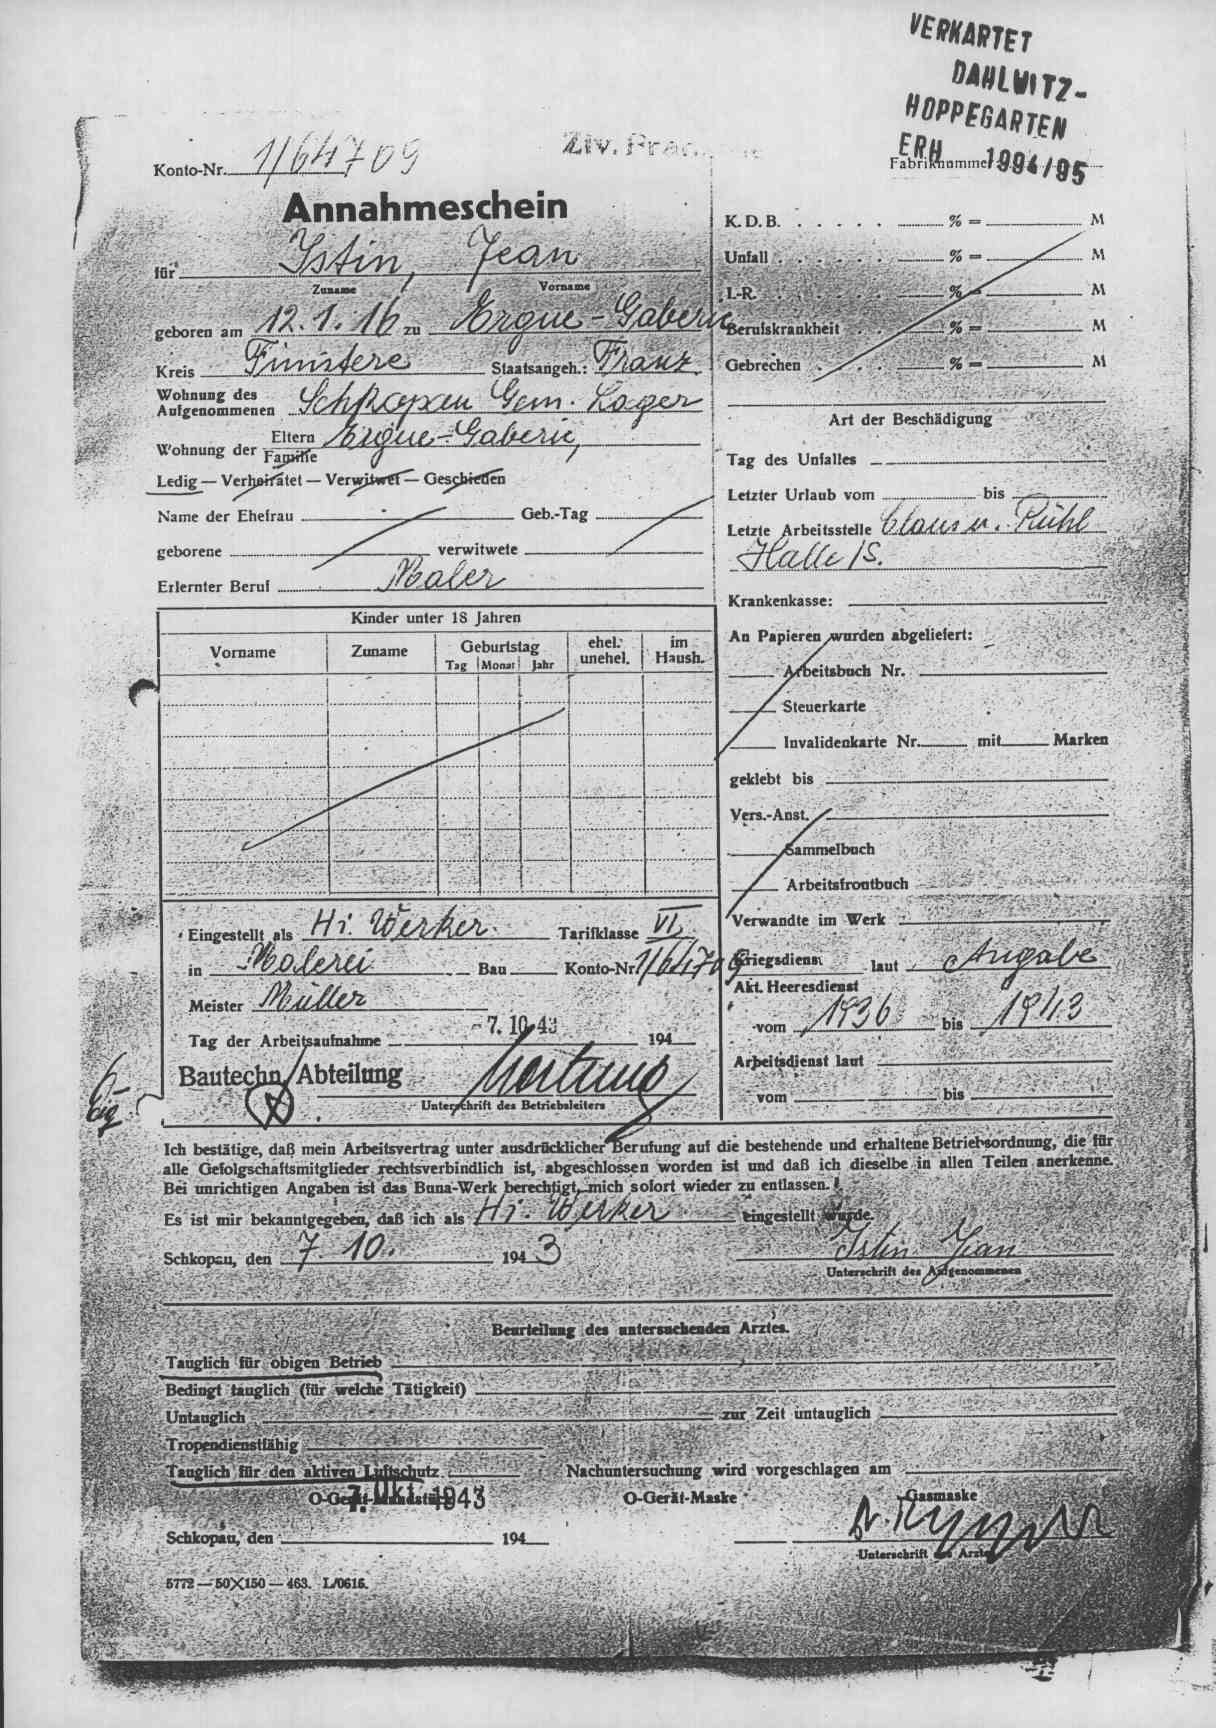 VERKARTET
DAHLWITZ-
HOPPEGARTEN
ERH 1994/95
Konto-Nr. 1/64709
Ziv.
Fabriknummer
Annahmeschein
für Istin, Jean
Zuname Vorname
geboren am 12.1.16 zu Ergue-Gaberic
Kreis Finistere Staatsangeh.: Franz.
Wohnung des
Aufgenommenen Schkopau Gem. Lager
Wohnung der Eltern Ergue-Gaberic,
Familie
Ledig — Verheiratet — Verwitwet — Geschieden
Name der Ehefrau Geb.-Tag
geborene verwitwete
Erlernter Beruf Maler
Kinder unter 18 Jahren
Vorname Zuname Geburtstag ehel. im
Tag Monat Jahr unehel. Haush.
Eingestellt als Hi. Werker. Tarifklasse VI
in Malerei Bau Konto-Nr. 1/64709
Meister Müller
Tag der Arbeitsaufnahme - 7. 10. 43 194
Bautechn. Abteilung
Unterschrift des Betriebsleiters
K. D. B. % = M
Unfall % = M
I.-R. % = M
Berufskrankheit % = M
Gebrechen % = M
Art der Beschädigung
Tag des Unfalles
Letzter Urlaub vom bis
Letzte Arbeitsstelle Claus u. Rühl
Halle /S.
Krankenkasse:
An Papieren wurden abgeliefert:
Arbeitsbuch Nr.
Steuerkarte
Invalidenkarte Nr. mit Marken
geklebt bis
Vers.-Anst.
Sammelbuch
Arbeitsfrontbuch
Verwandte im Werk
Kriegsdienst laut Angabe
Akt. Heeresdienst
vom 1936 bis 1943
Arbeitsdienst laut
vom bis
Ich bestätige, daß mein Arbeitsvertrag unter ausdrücklicher Berufung auf die bestehende und erhaltene Betriebsordnung, die für
alle Gefolgschaftsmitglieder rechtsverbindlich ist, abgeschlossen worden ist und daß ich dieselbe in allen Teilen anerkenne.
Bei unrichtigen Angaben ist das Buna-Werk berechtigt, mich sofort wieder zu entlassen.
Es ist mir bekanntgegeben, daß ich als Hi. Werker eingestellt wurde.
Schkopau, den 7. 10. 1943 Istin Jean
Unterschrift des Aufgenommenen
Beurteilung des untersuchenden Arztes.
Tauglich für obigen Betrieb
Bedingt tauglich (für welche Tätigkeit)
Untauglich zur Zeit untauglich
Tropendienstfähig
Tauglich für den aktiven Luftschutz Nachuntersuchung wird vorgeschlagen am
O-Gerät-Mundstück O-Gerät-Maske Gasmaske
7. Okt. 1943
Schkopau, den 194
Unterschrift des Arztes
5772 — 50X150 — 463. L/0616.